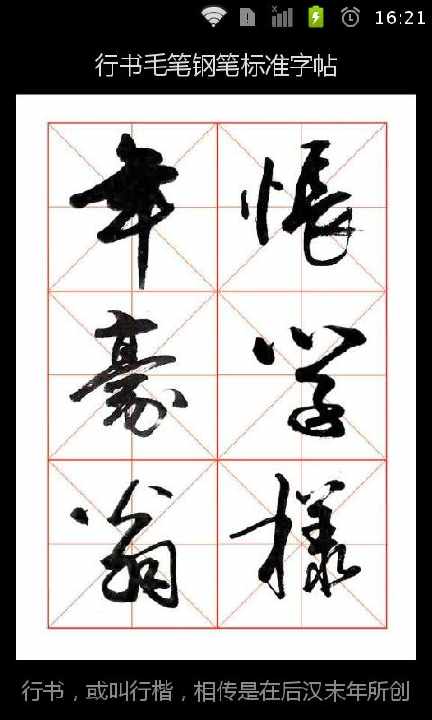 16:21
行书毛笔钢笔标准字帖
年 悵
豪 学
翁 様
行书，或叫行楷，相传是在后汉末年所创